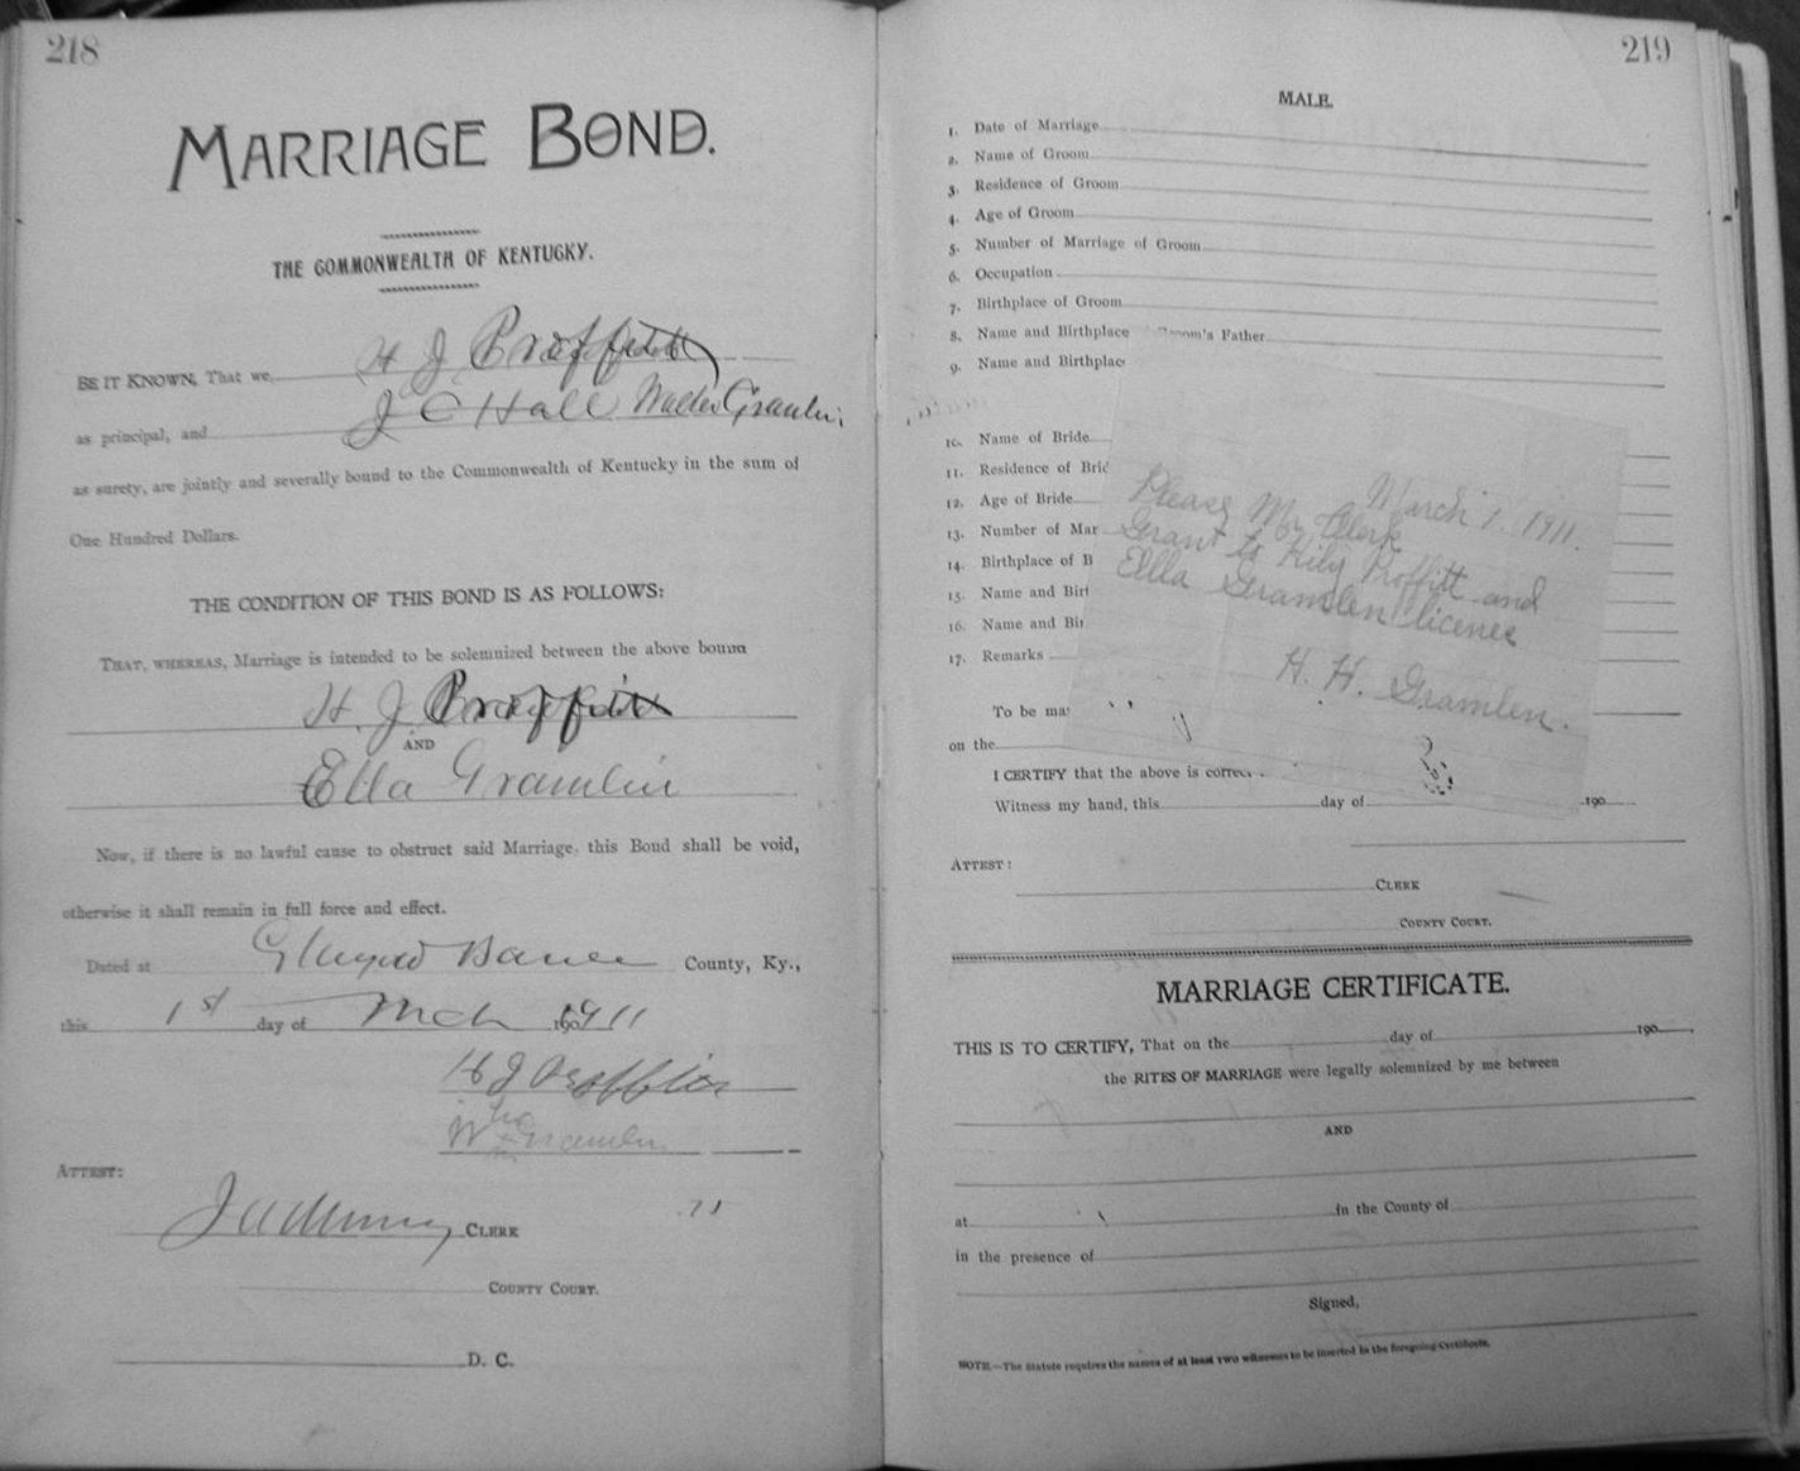 218
MARRIAGE BOND.
THE COMMONWEALTH OF KENTUCKY.
BE IT KNOWN, That we, H J Proffitt
as principal, and J C Hall Walter Gramlin
as surety, are jointly and severally bound to the Commonwealth of Kentucky in the sum of
One Hundred Dollars.
THE CONDITION OF THIS BOND IS AS FOLLOWS:
THAT, WHEREAS, Marriage is intended to be solemnized between the above bound
H. J Proffitt
AND
Ella Gramlin
Now, if there is no lawful cause to obstruct said Marriage, this Bond shall be void,
otherwise it shall remain in full force and effect.
Dated at Barren County, Ky.,
this 1st day of Mch 1911
H J Proffitt
W Gramlin
ATTEST:
CLERK
COUNTY COURT.
D. C.
219
MALE.
1. Date of Marriage
2. Name of Groom
3. Residence of Groom
4. Age of Groom
5. Number of Marriage of Groom
6. Occupation
7. Birthplace of Groom
8. Name and Birthplace Groom's Father
9. Name and Birthplac
10. Name of Bride
11. Residence of Brid
12. Age of Bride
13. Number of Mar
14. Birthplace of B
15. Name and Birt
16. Name and Bir
17. Remarks
March 1. 1911.
Please Mr Clerk
Grant to Hily Proffitt and
Ella Gramlen licence
H. H. Gramlen.
To be mar
on the
I CERTIFY that the above is correct
Witness my hand, this day of 190
ATTEST:
CLERK
COUNTY COURT.
MARRIAGE CERTIFICATE.
THIS IS TO CERTIFY, That on the day of 190
the RITES OF MARRIAGE were legally solemnized by me between
AND
at in the County of
in the presence of
Signed,
NOTE.—The Statute requires the names of at least two witnesses to be inserted in the foregoing Certificate.